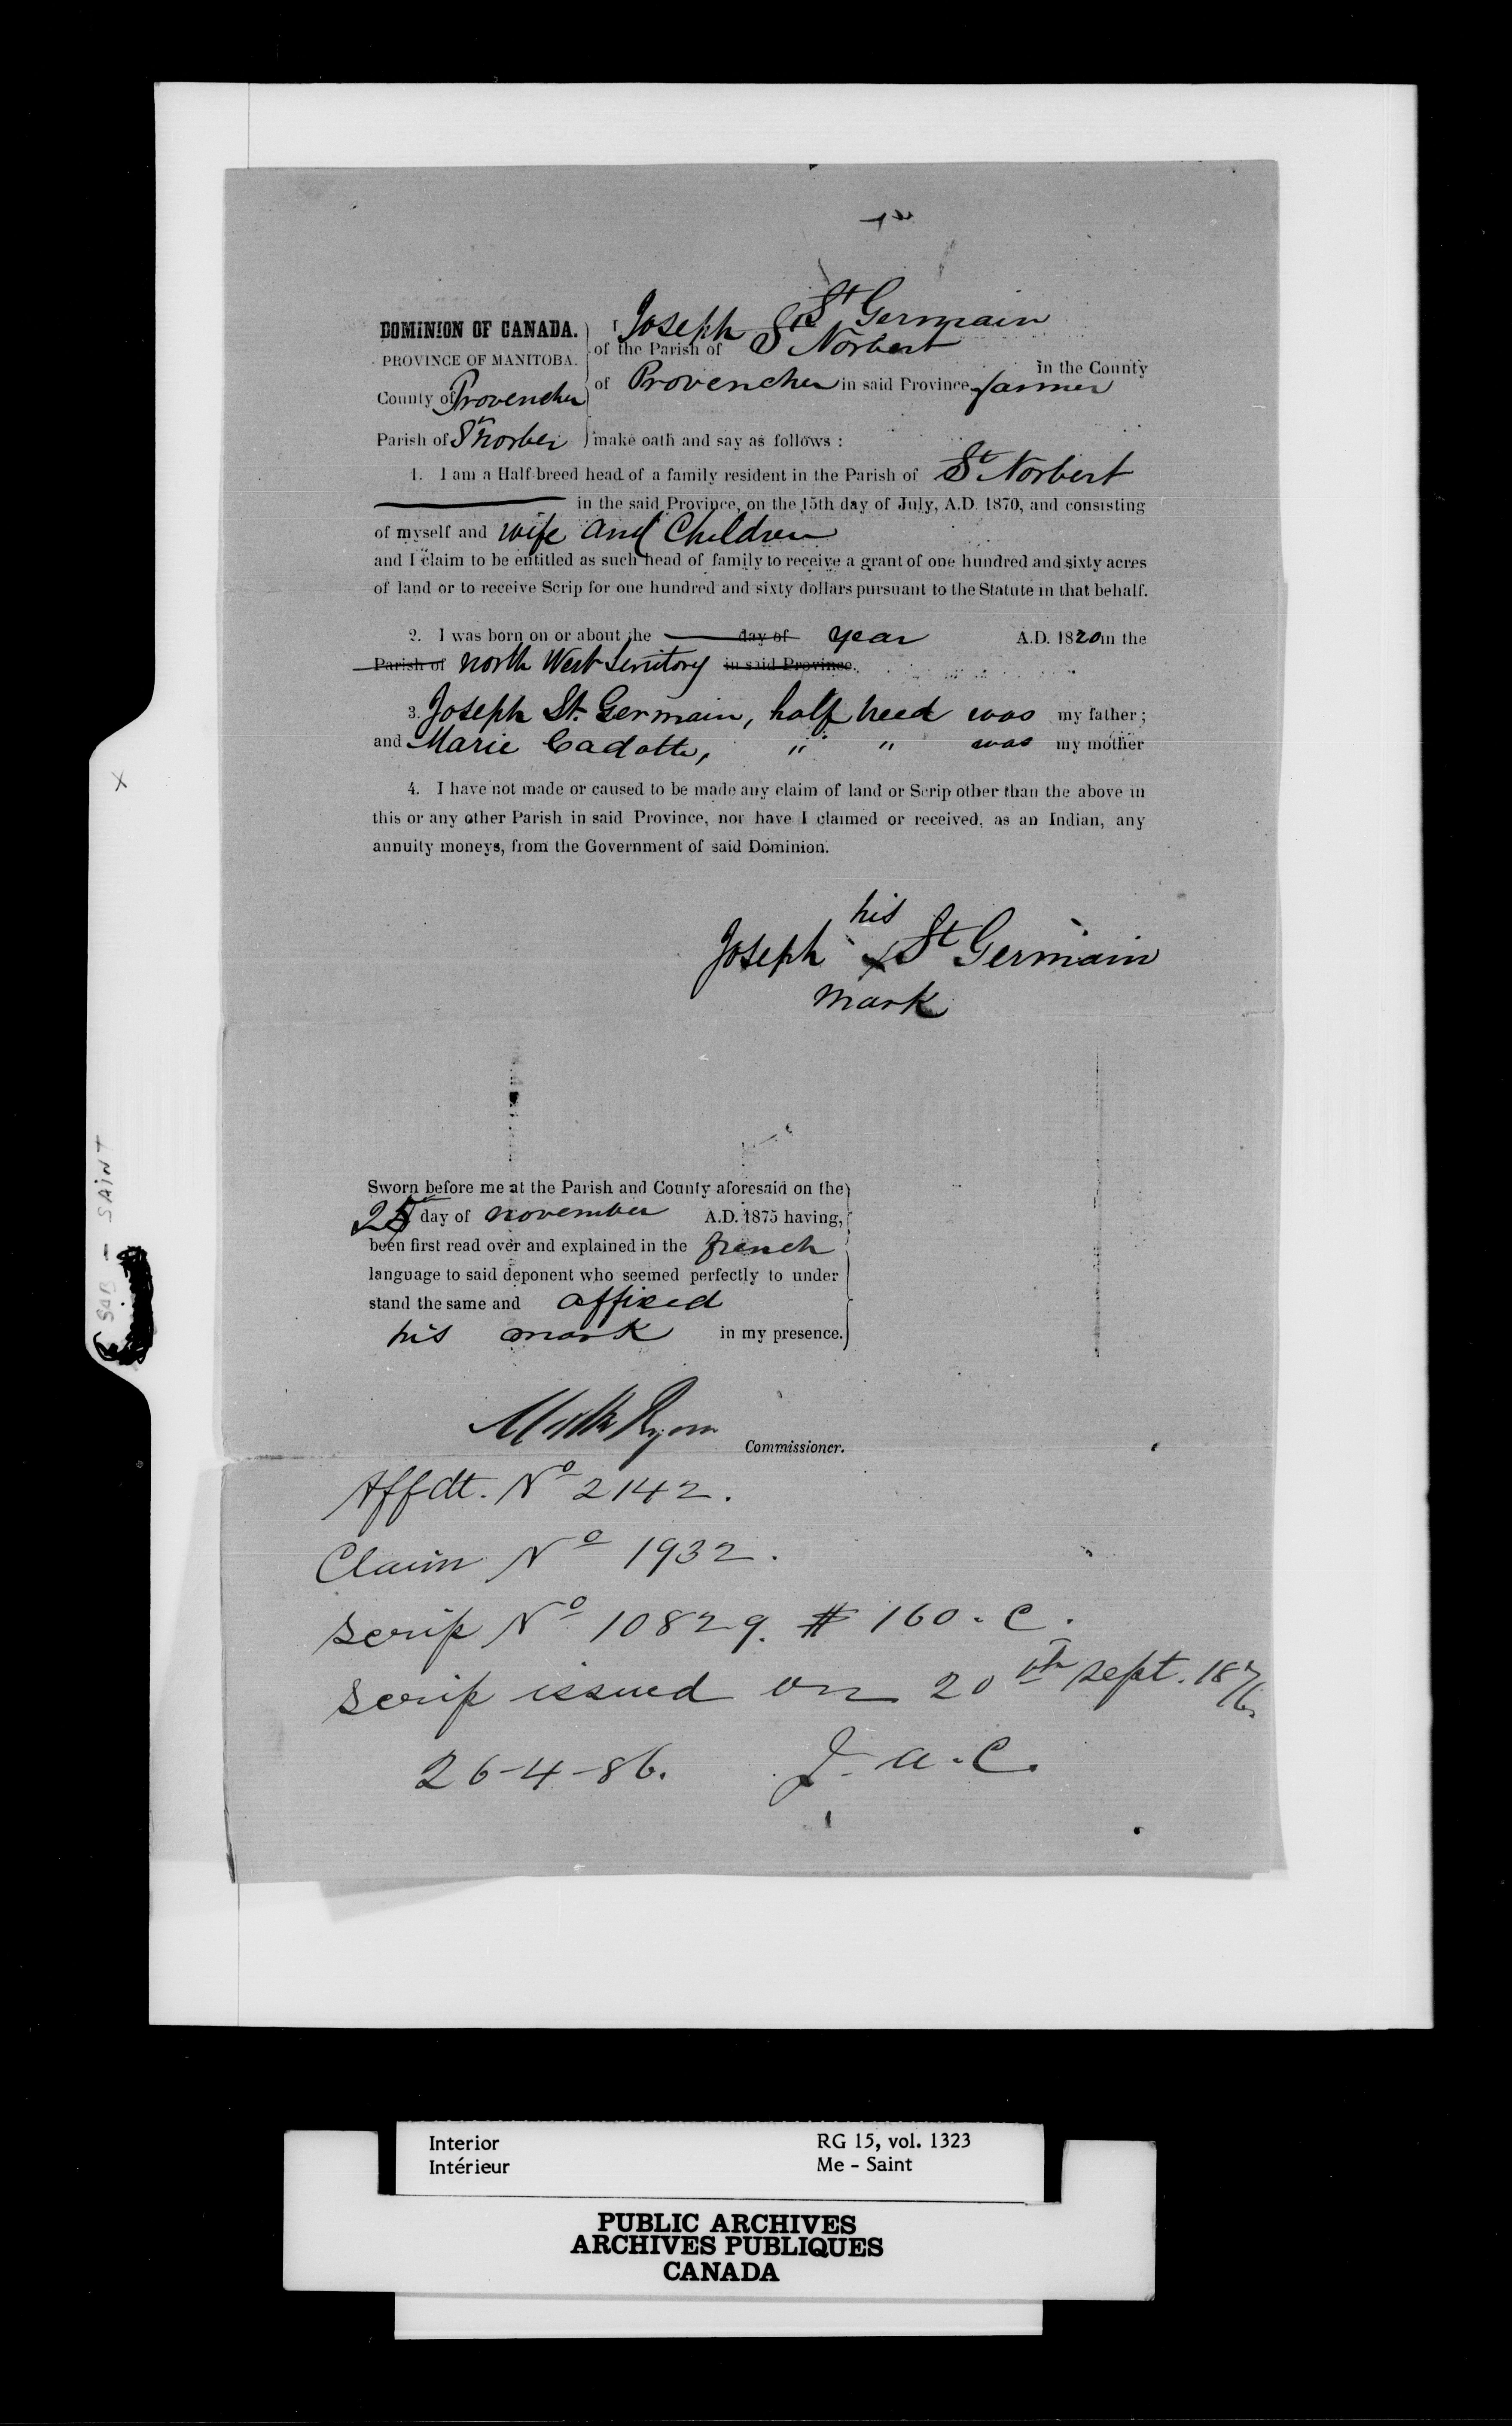 I Joseph St Germain
DOMINION OF CANADA.
of the Parish of St Norbert
PROVINCE OF MANITOBA.
in the County
County of Provencher
of Provencher in said Province farmer
Parish of St norber
make oath and say as follows :
1. I am a Half-breed head of a family resident in the Parish of St Norbert
in the said Province, on the 15th day of July, A.D. 1870, and consisting
of myself and wife and Children
and I claim to be entitled as such head of family to receive a grant of one hundred and sixty acres
of land or to receive Scrip for one hundred and sixty dollars pursuant to the Statute in that behalf.
2. I was born on or about the day of year A.D. 1820 in the
Parish of north West Territory in said Province.
3. Joseph St. Germain, half breed was my father ;
and Marie Cadotte, " " was my mother
4. I have not made or caused to be made any claim of land or Scrip other than the above in
this or any other Parish in said Province, nor have I claimed or received, as an Indian, any
annuity moneys, from the Government of said Dominion.
his
Joseph x St Germain
mark
Sworn before me at the Parish and County aforesaid on the
25 day of november A.D. 1875 having,
been first read over and explained in the french
language to said deponent who seemed perfectly to under
stand the same and affixed
his mark in my presence.
Matt Ryan
Commissioner.
Affdt. No 2142.
Claim No 1932.
Scrip No 10829. $ 160. C.
Scrip issued on 20th Sept. 1876
26-4-86. J. a. C.
X
SAB - SAINT
Interior
Intérieur
RG 15, vol. 1323
Me - Saint
PUBLIC ARCHIVES
ARCHIVES PUBLIQUES
CANADA